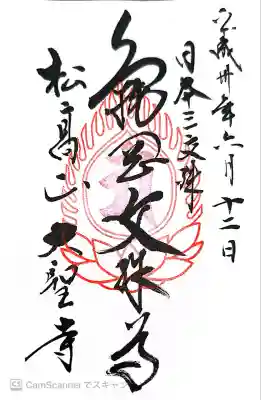 平成卅年六月十二日
日本三文殊
亀岡文殊尊
松高山大聖寺
CS CamScanner でスキャン